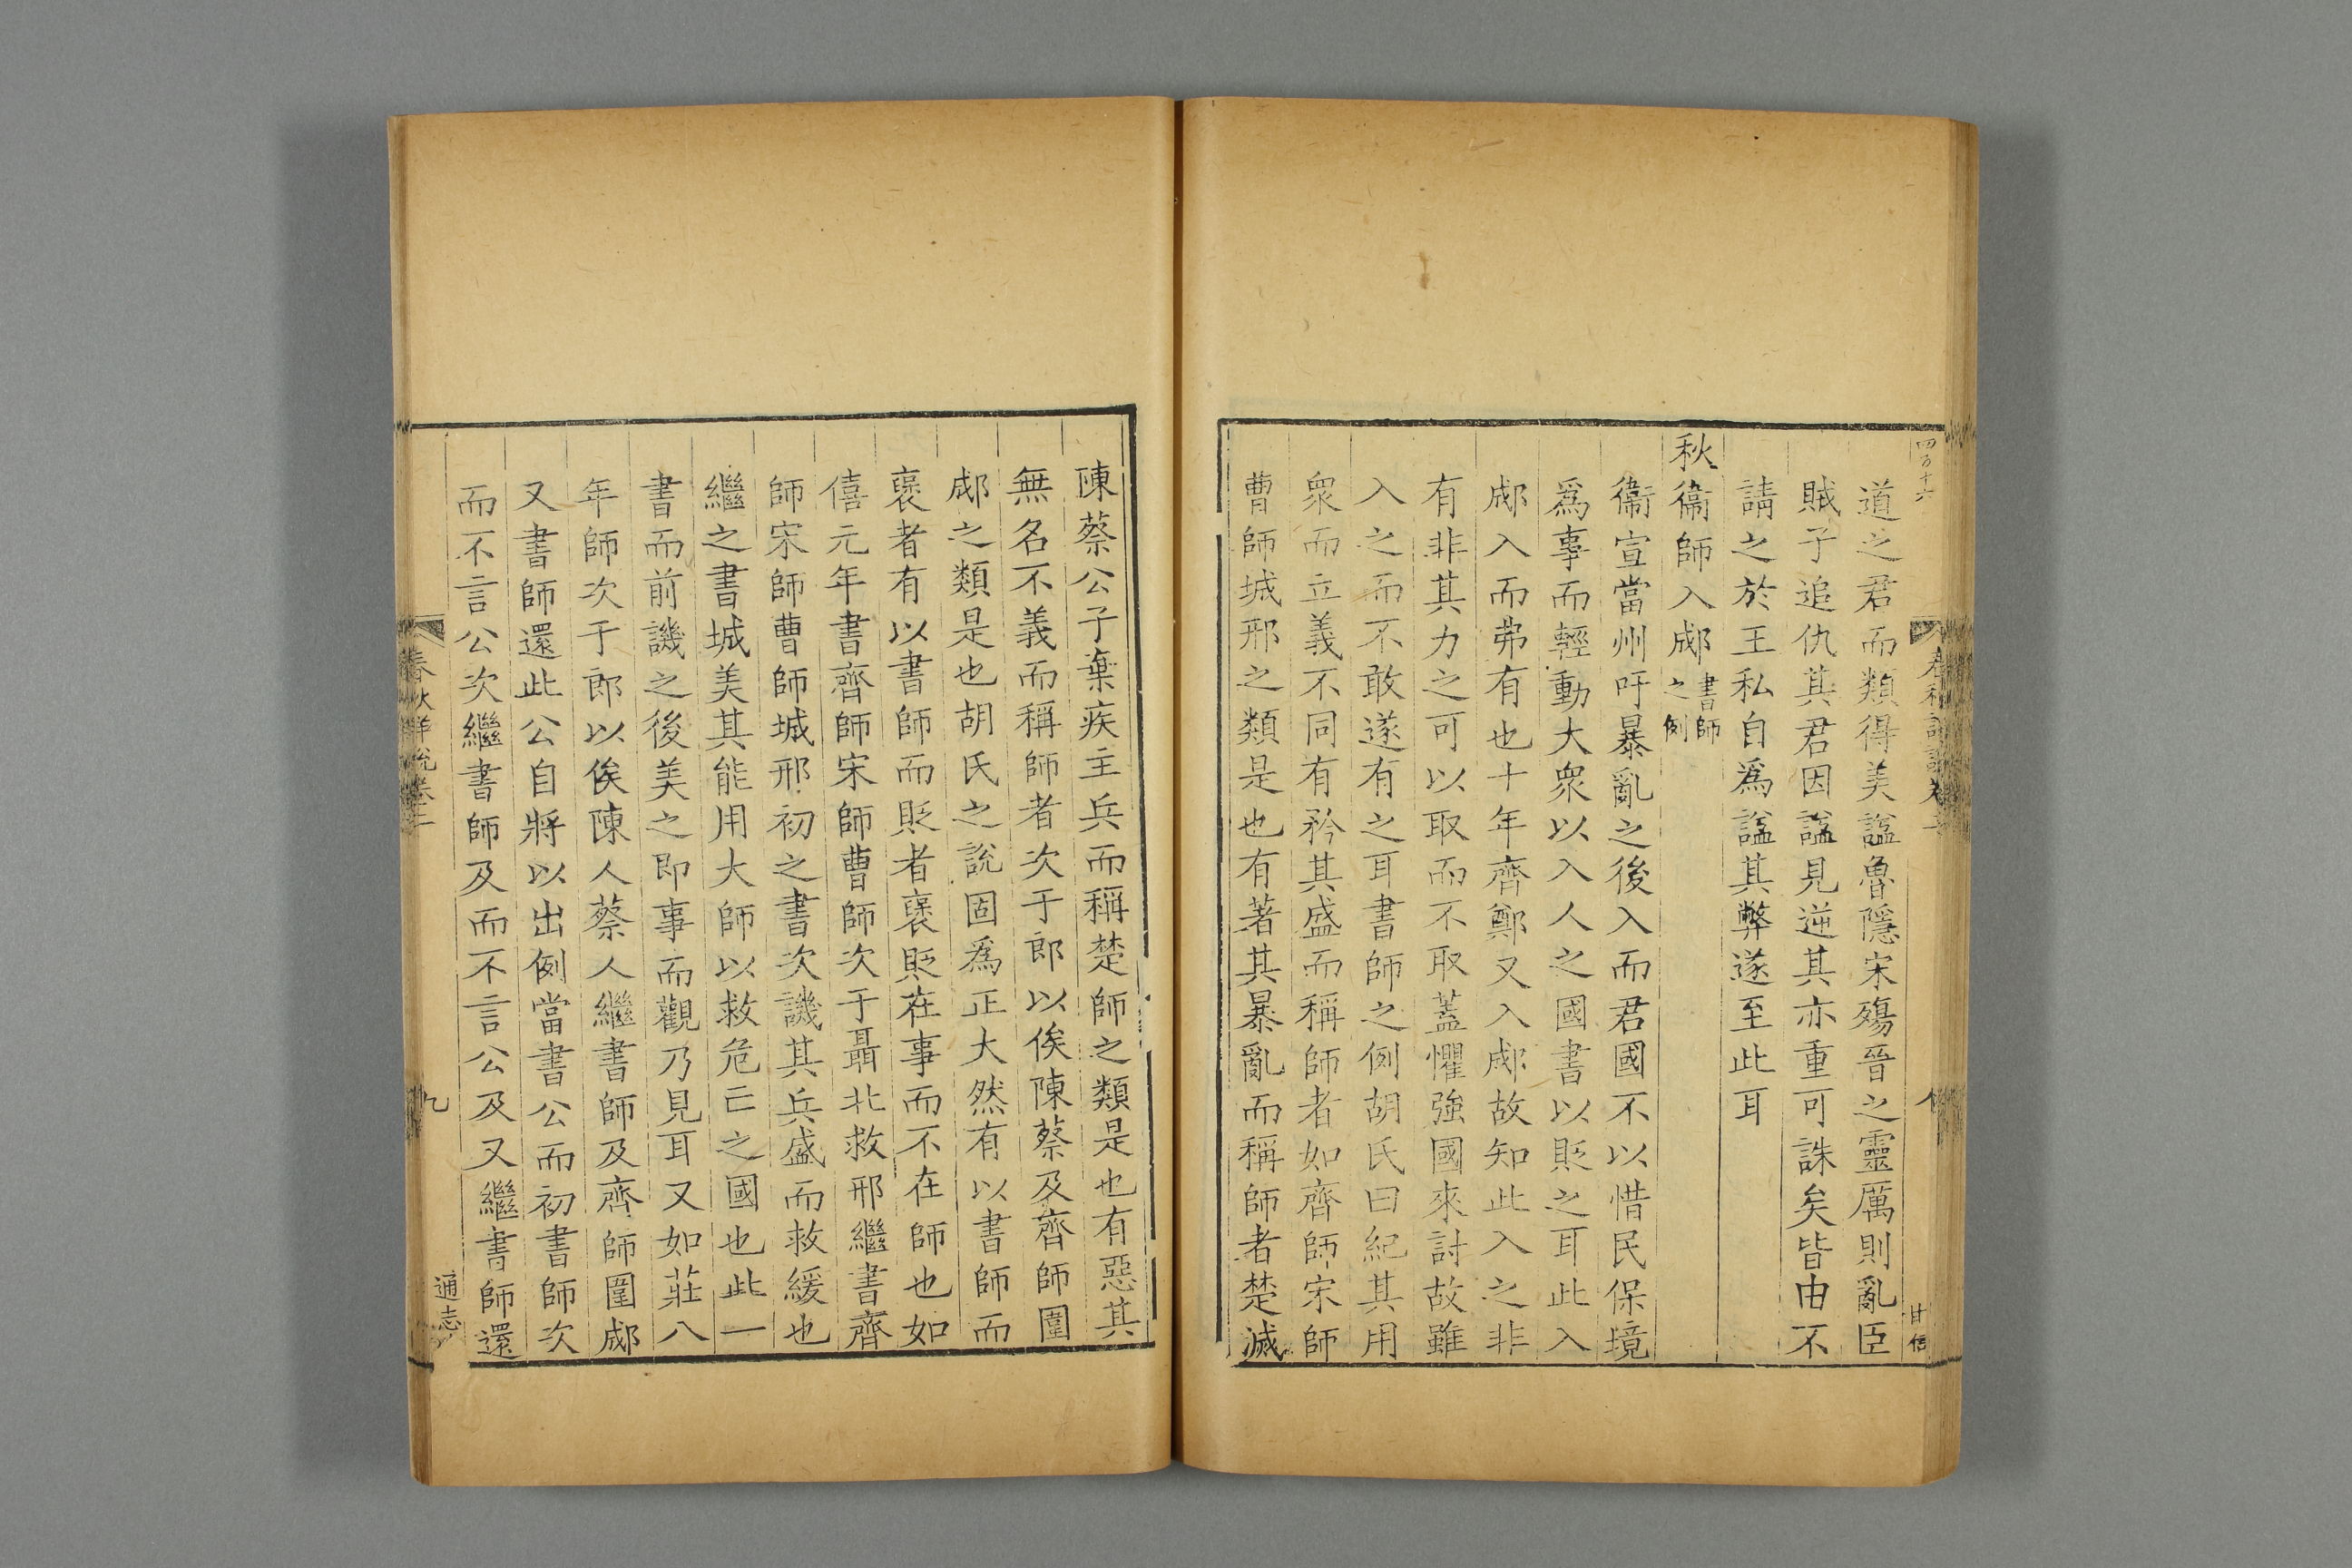 四百十六
道之君而類得美諡魯隱宋殤晉之靈厲則亂臣
賊子追仇其君因諡見逆其亦重可誅矣皆由不
請之於王私自爲諡其弊遂至此耳
秋衞師入郕書師之例
衞宣當州吁暴亂之後入而君國不以惜民保境
爲事而輕動大衆以入人之國書以貶之耳此入
郕入而弗有也十年齊鄭又入郕故知此入之非
有非其力之可以取而不取蓋懼強國來討故雖
入之而不敢遂有之耳書師之例胡氏曰紀其用
衆而立義不同有矜其盛而稱師者如齊師宋師
曹師城邢之類是也有著其暴亂而稱師者楚滅
陳蔡公子棄疾主兵而稱楚師之類是也有惡其
無名不義而稱師者次于郎以俟陳蔡及齊師圍
郕之類是也胡氏之說固爲正大然有以書師而
襃者有以書師而貶者襃貶在事而不在師也如
僖元年書齊師宋師曹師次于聶北救邢繼書齊
師宋師曹師城邢初之書次譏其兵盛而救緩也
繼之書城美其能用大師以救危亡之國也此一
書而前譏之後美之即事而觀乃見耳又如莊八
年師次于郎以俟陳人蔡人繼書師及齊師圍郕
又書師還此公自將以出例當書公而初書師次
而不言公次繼書師及而不言公及又繼書師還
春秋詳說卷二
九
通志